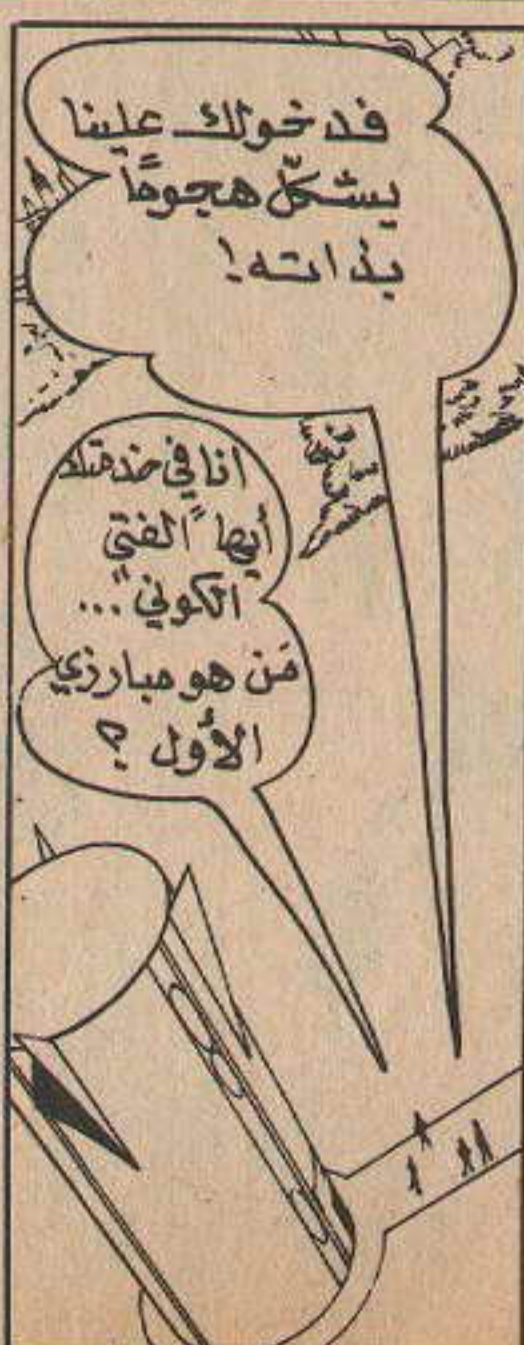 فدخولك علينا
يشكّل هجوماً
بذاته!
انا في خدمتك
أيها "الفتى
الكوني"...
مَن هو مبارزي
الأول ؟